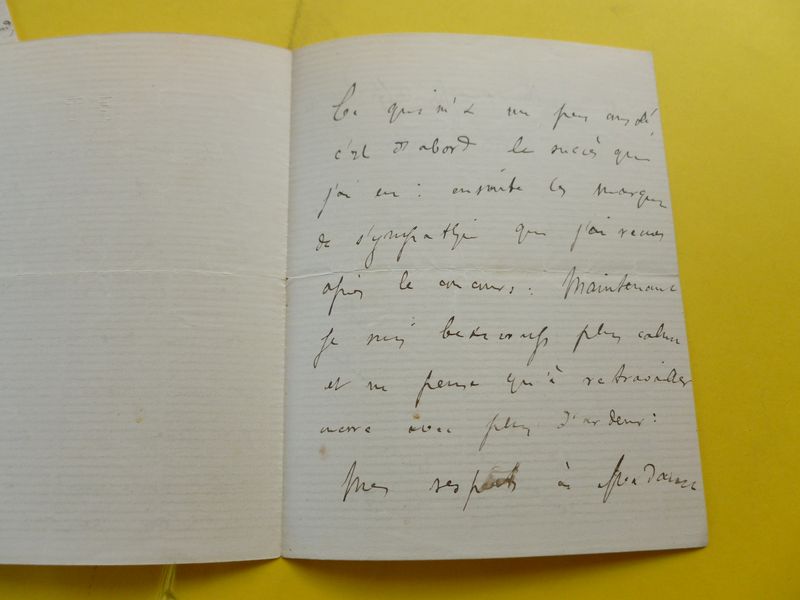 Ce qui m'a un peu
c'est d'abord le succès que
j'ai eu : ensuite les marques
de sympathie que j'ai reçues
après le concours : Maintenant
je suis beaucoup plus calme
et ne pense qu'à retravailler
encore avec plus d'ardeur :
Mes respects à Madame